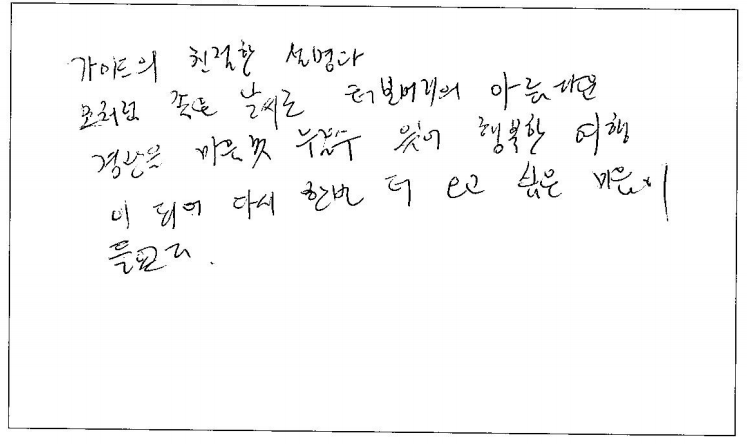 가이드의 친절한 설명과
모처럼 좋은 날씨로 아름다운
경관을 마음껏 누릴수 있어 행복한 여행
이 되어 다시 한번 더 오고 싶은 마음이